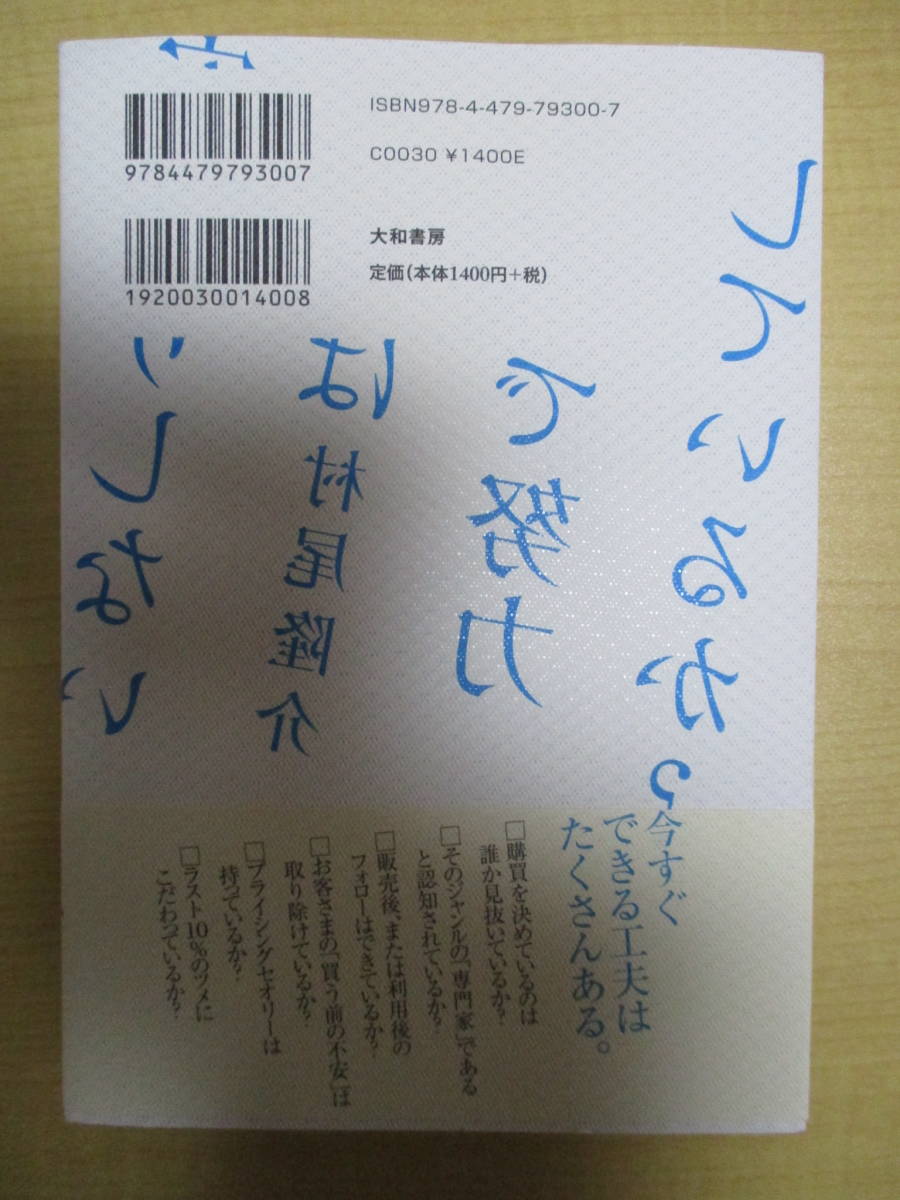 ISBN978-4-479-79300-7
C0030 ¥1400E
9784479793007
大和書房
定価(本体1400円+税)
1920030014008
しているか?
で努力
は
村尾隆介
りしない
今すぐ
できる工夫は
たくさんある。
□購買を決めているのは
誰か見抜いているか?
□そのジャンルの「専門家」である
と認知されているか?
□販売後、または利用後の
フォローはできているか?
□お客さまの「買う前の不安」は
取り除けているか?
□プライシングセオリーは
持っているか?
□ラスト10%のツメに
こだわっているか?